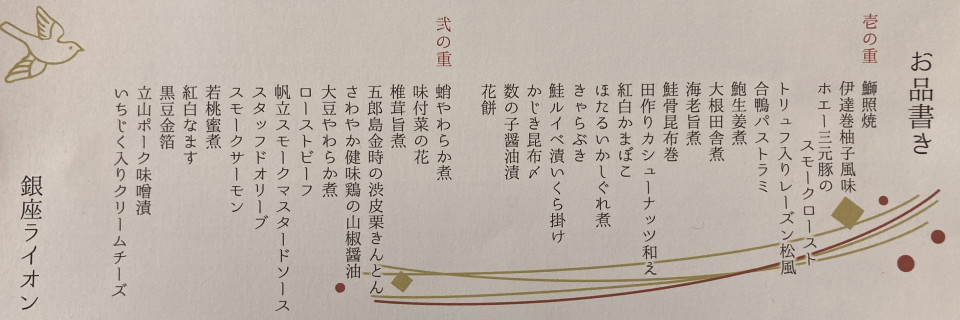 お品書き
壱の重
鰤照焼
伊達巻柚子風味
ホエー三元豚の
スモークロースト
トリュフ入りレーズン松風
合鴨パストラミ
鮑生姜煮
大根田舎煮
海老旨煮
鮭骨昆布巻
田作りカシューナッツ和え
紅白かまぼこ
ほたるいかしぐれ煮
きゃらぶき
鮭ルイベ漬いくら掛け
かじき昆布〆
数の子醤油漬
花餅
弐の重
蛸やわらか煮
味付菜の花
椎茸旨煮
五郎島金時の渋皮栗きんとん
さわやか健味鶏の山椒醤油
大豆やわらか煮
ローストビーフ
帆立スモークマスタードソース
スタッフドオリーブ
スモークサーモン
若桃蜜煮
紅白なます
黒豆金箔
立山ポーク味噌漬
いちじく入りクリームチーズ
銀座ライオン